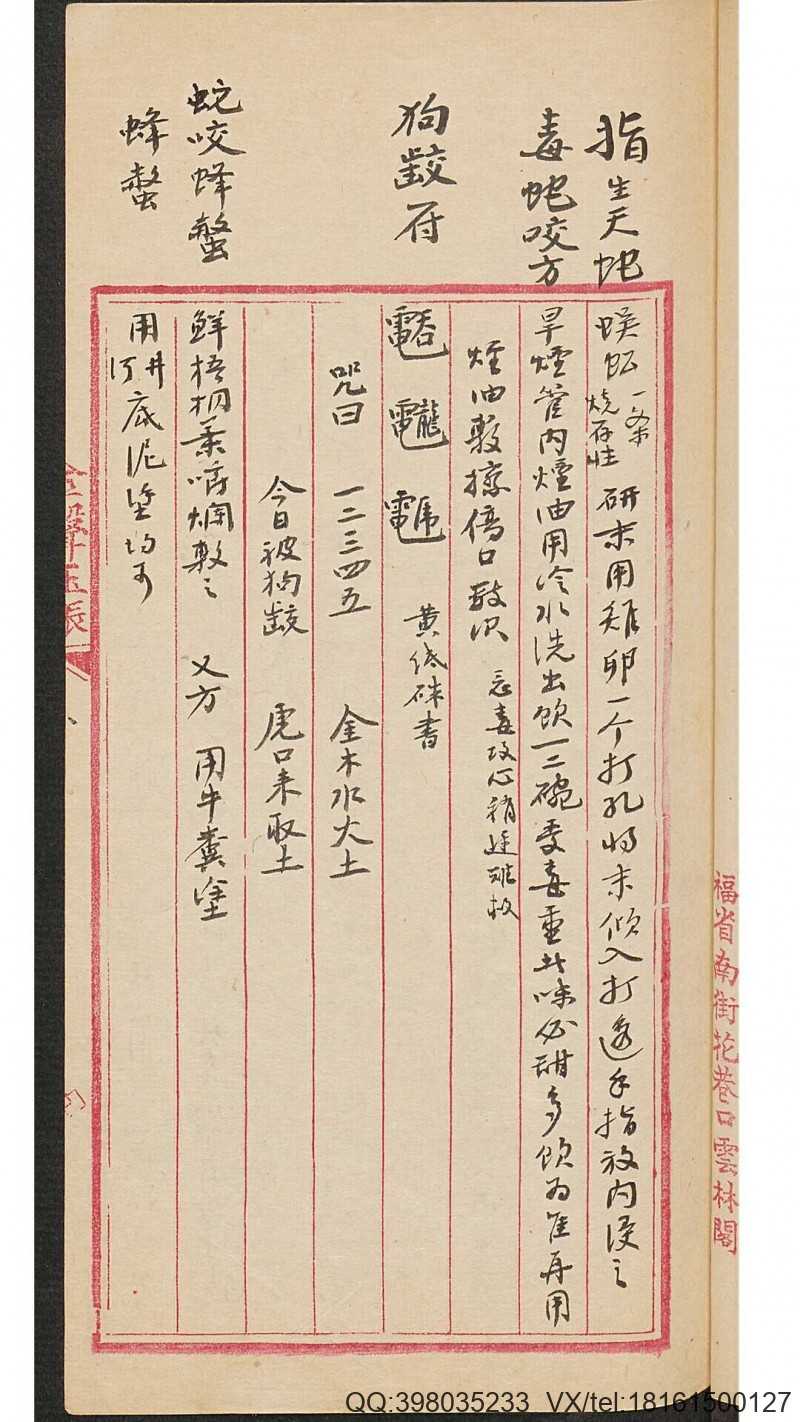 指生天蛇
蜈蚣一条烧存性 研末用雞卵一个打孔将末倾入打透手指放内浸之
毒蛇咬方
旱煙管内煙油用冷水洗出飲一二碗受毒重者味必甜多飲為佳再用
煙油敷擦傷口 忌毒攻心稍遲難救
狗齩符
黄纸硃書
咒曰 一二三四五 金木水火土
今日被狗齩 虎口来取土
蛇咬蜂螫
鮮梧桐葉嚼爛敷之 又方 用牛糞塗
蜂螫
用井河底泥塗均可
福省南街花巷口雲林閣
QQ:398035233 VX/tel:18161500127